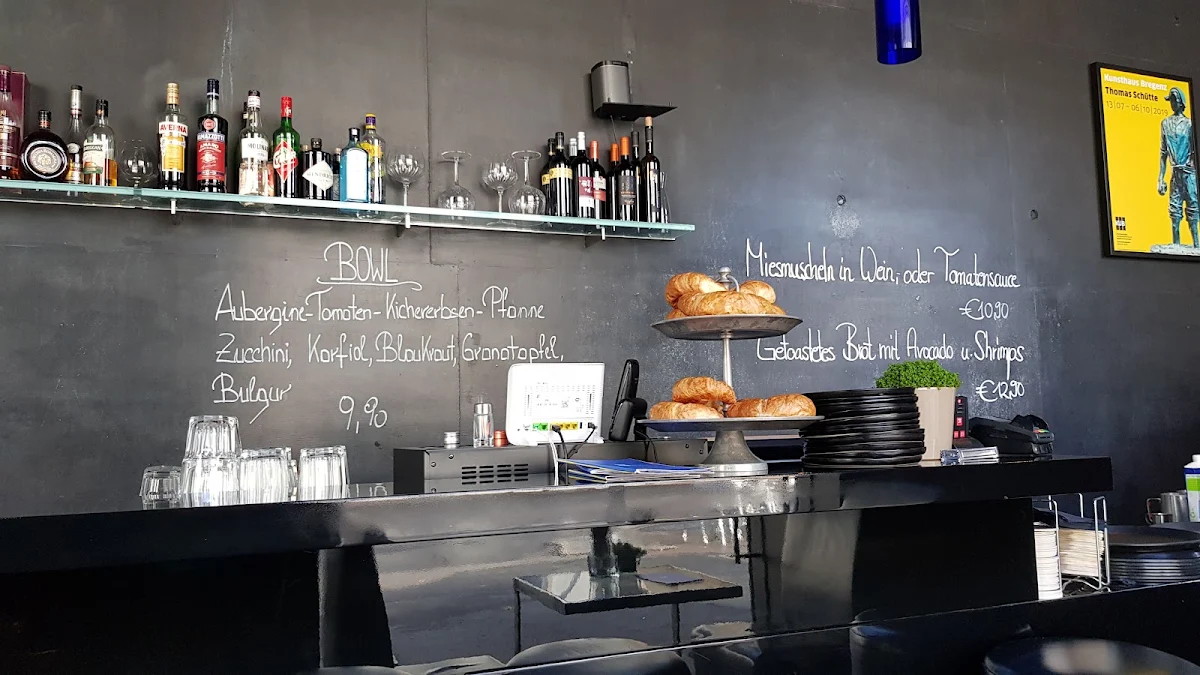 AVERNA
RAMAZZOTTI
MOLINARI
BOWL
Aubergine-Tomaten-Kichererbsen-Pfanne
Zucchini, Karfiol, Blaukraut, Granatapfel,
Bulgur 9,90
Miesmuscheln in Wein, oder Tomatensauce
€10,90
Getoastetes Brot mit Avocado u. Shrimps
€12,90
Kunsthaus Bregenz
Thomas Schütte
13|07 – 06|10|2019